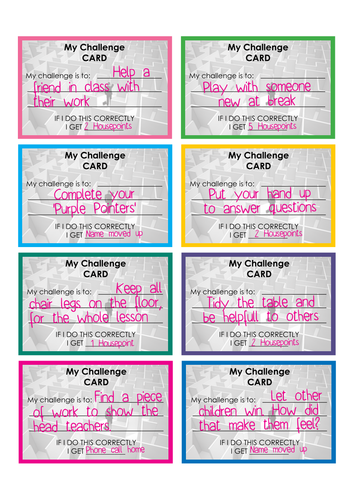 My Challenge
CARD
My challenge is to: Help a
friend in class with
their work
IF I DO THIS CORRECTLY
I GET 2 Housepoints
My Challenge
CARD
My challenge is to:
Play with someone
new at break
IF I DO THIS CORRECTLY
I GET 5 Housepoints
My Challenge
CARD
My challenge is to:
Complete your
'Purple Pointers'
IF I DO THIS CORRECTLY
I GET Name moved up
My Challenge
CARD
My challenge is to:
Put your hand up
to answer questions
IF I DO THIS CORRECTLY
I GET 2 Housepoints
My Challenge
CARD
My challenge is to: Keep all
chair legs on the floor,
for the whole lesson
IF I DO THIS CORRECTLY
I GET 1 Housepoint
My Challenge
CARD
My challenge is to:
Tidy the table and
be helpfull to others
IF I DO THIS CORRECTLY
I GET 2 Housepoints
My Challenge
CARD
My challenge is to: Find a piece
of work to show the
head teachers
IF I DO THIS CORRECTLY
I GET Phone call home
My Challenge
CARD
My challenge is to: Let other
children win. How did
that make them feel?
IF I DO THIS CORRECTLY
I GET Name moved up